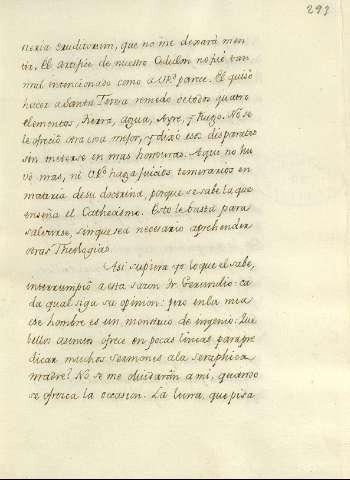 293
teria eruditorum, que no me dexará men-
tir. El artifice de nuestro Odulon no fué tan
mal intencionado como a Vm.d parece. El quiso
hacer a Santa Teresa remedo de todos quatro
elementos, tierra, agua, Ayre, y fuego. No se
le ofreció otra cosa mejor, y dixo esos disparates
sin meterse en mas honduras. Aqui no hu-
vo mas, ni Vm.d haga juicios temerarios en
materia de su doctrina, porque se sabe la que
enseña el Cathecismo. Esto le basta para
salvarse, sin que sea necesario aprehender
otras Theologias.
Asi supiera yo lo que el sabe,
interrumpió a esta sazon Fr. Gerundio: ca-
da qual siga su opinion: pero en la mia
ese hombre es un monstruo de ingenio: Que
bellos asuntos ofrece en pocas lineas para pre-
dicar muchos sermones a la seraphica
madre! No se me olvidarán a mi, quando
se ofrezca la ocasion. La luna, que pisa